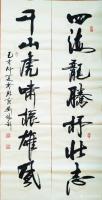 四海龍騰抒壯志
千山虎嘯振雄風